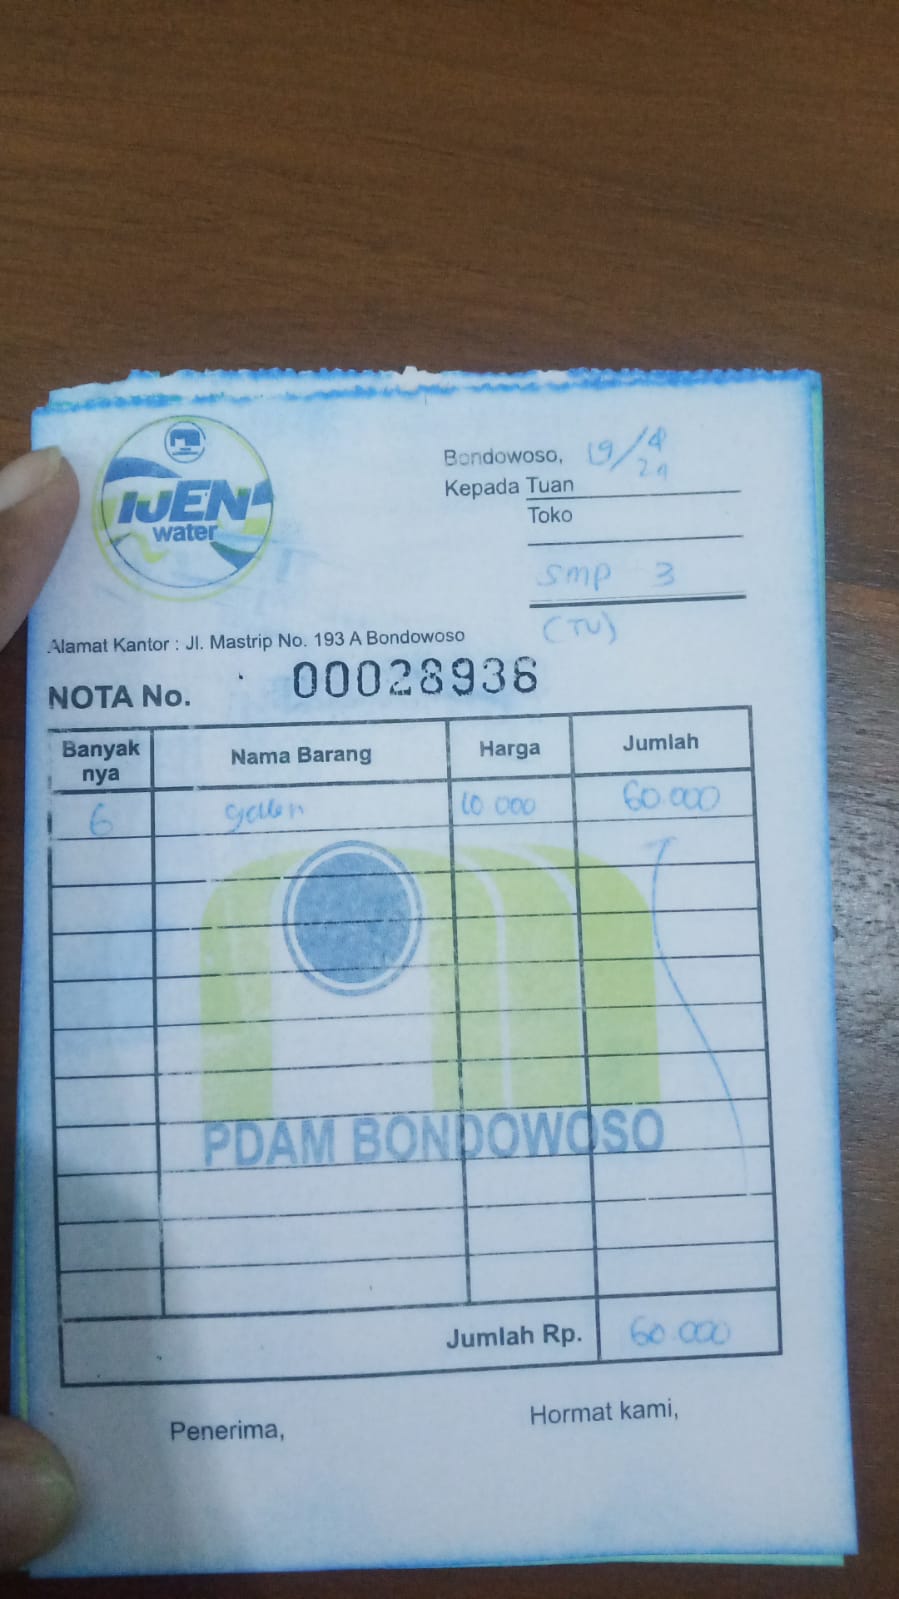 IJEN
water
Bondowoso, 19/4
24
Kepada Tuan
Toko
SMP 3
(TU)
Alamat Kantor : Jl. Mastrip No. 193 A Bondowoso
NOTA No. 00028936
Banyak nya Nama Barang Harga Jumlah
6 galon 10.000 60.000
PDAM BONDOWOSO
Jumlah Rp. 60.000
Penerima, Hormat kami,